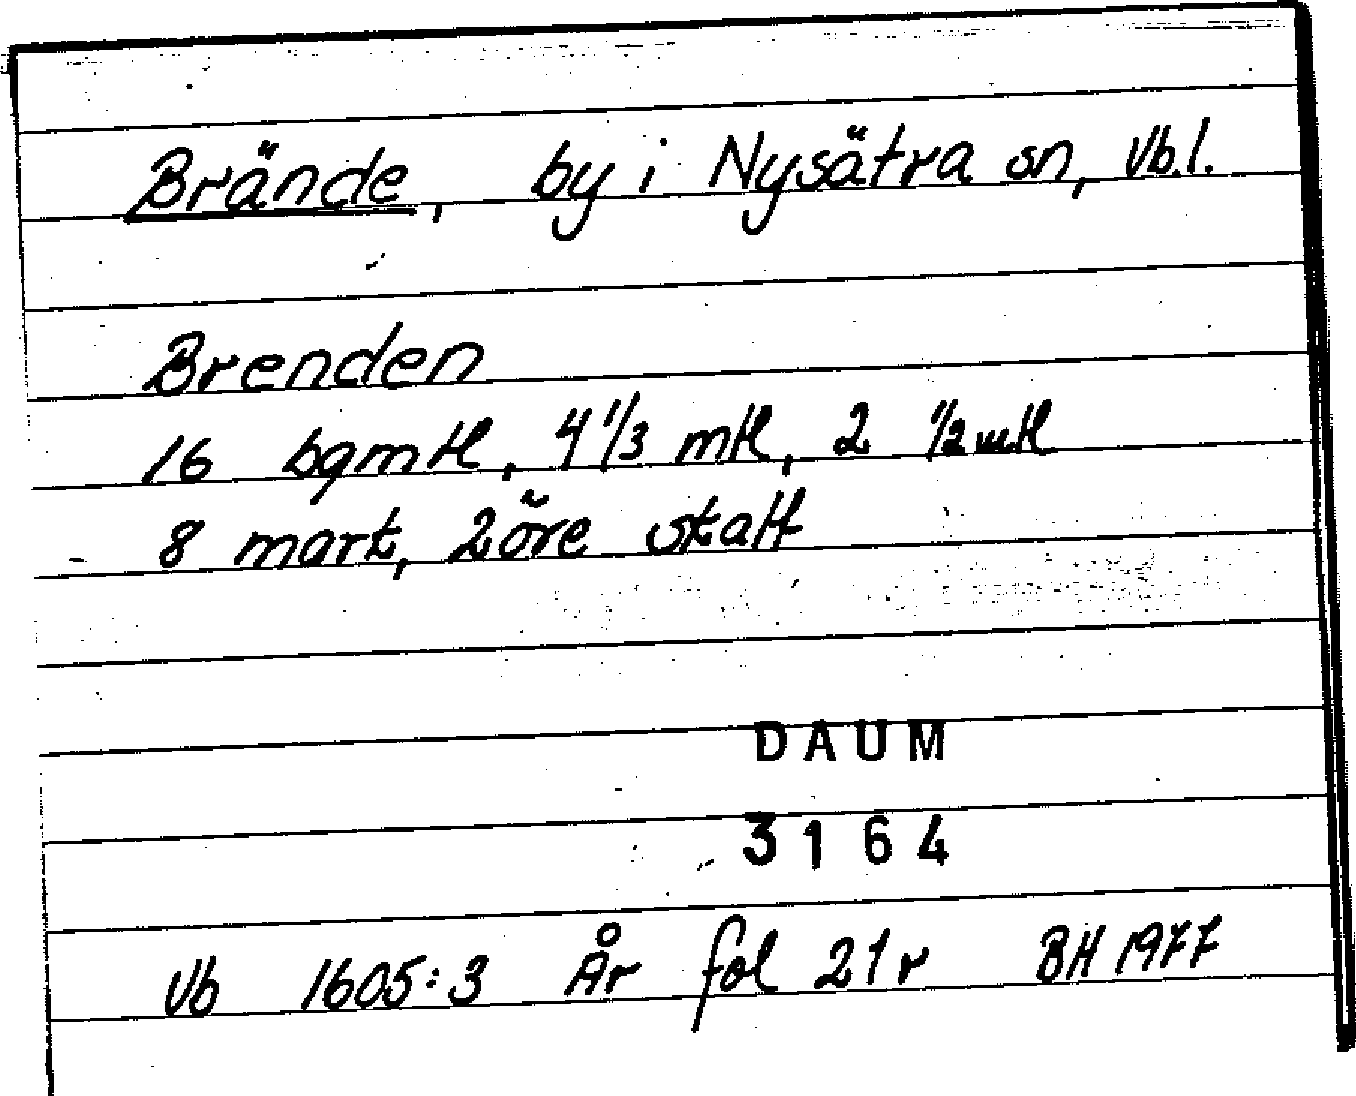 Brände, by i Nysätra sn, Vb.l.
Brenden
16 bgmtl, 4 1/3 mtl, 2 1/2 mtl
8 mark, 2 öre skatt
DAUM
3164
Vb 1605:3 År fol 21r BH 1977